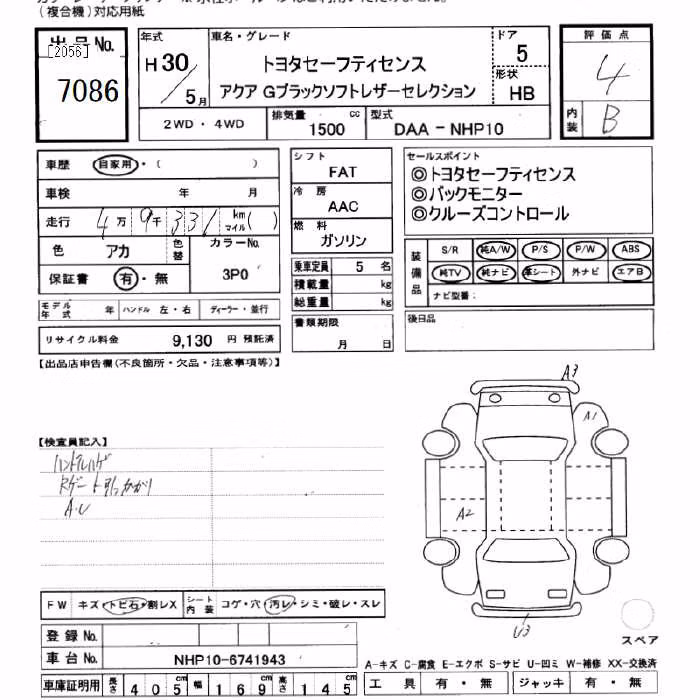 (複合機)対応用紙
出品No.
[2056]
7086
年式
H 30 / 5月
車名・グレード
トヨタセーフティセンス
アクア Gブラックソフトレザーセレクション
ドア
5
形状
HB
評価点
4
内装
B
2WD・4WD
排気量
1500 cc
型式
DAA－NHP10
車歴 自家用・( )
車検 年 月
走行 4万9千331 km マイル( )
色 アカ 色替
カラーNo.
3P0
保証書 有・無
シフト
FAT
冷房
AAC
燃料
ガソリン
乗車定員 5 名
積載量 kg
総重量 kg
セールスポイント
◎トヨタセーフティセンス
◎バックモニター
◎クルーズコントロール
装備品
S/R 純A/W P/S P/W ABS
純TV 純ナビ 革シート 外ナビ エアB
ナビ型番：
モデル年式 年 ハンドル 左・右 ディーラー・並行
書類期限
月 日
後日品
リサイクル料金 9,130 円 預託済
【出品店申告欄(不良箇所・欠品・注意事項等)】
A3
A1
A2
U3
【検査員記入】
ハンドルハゲ
A.U
FW キズ・トビ石・割レX
シート内装 コゲ・穴・汚レ・シミ・破レ・スレ
登録No.
車台No. NHP10-6741943
車庫証明用 長さ 405cm 幅 169cm 高さ 145cm
スペア
A-キズ C-腐食 E-エクボ S-サビ U-凹ミ W-補修 XX-交換済
工具 有・無 ジャッキ 有・無